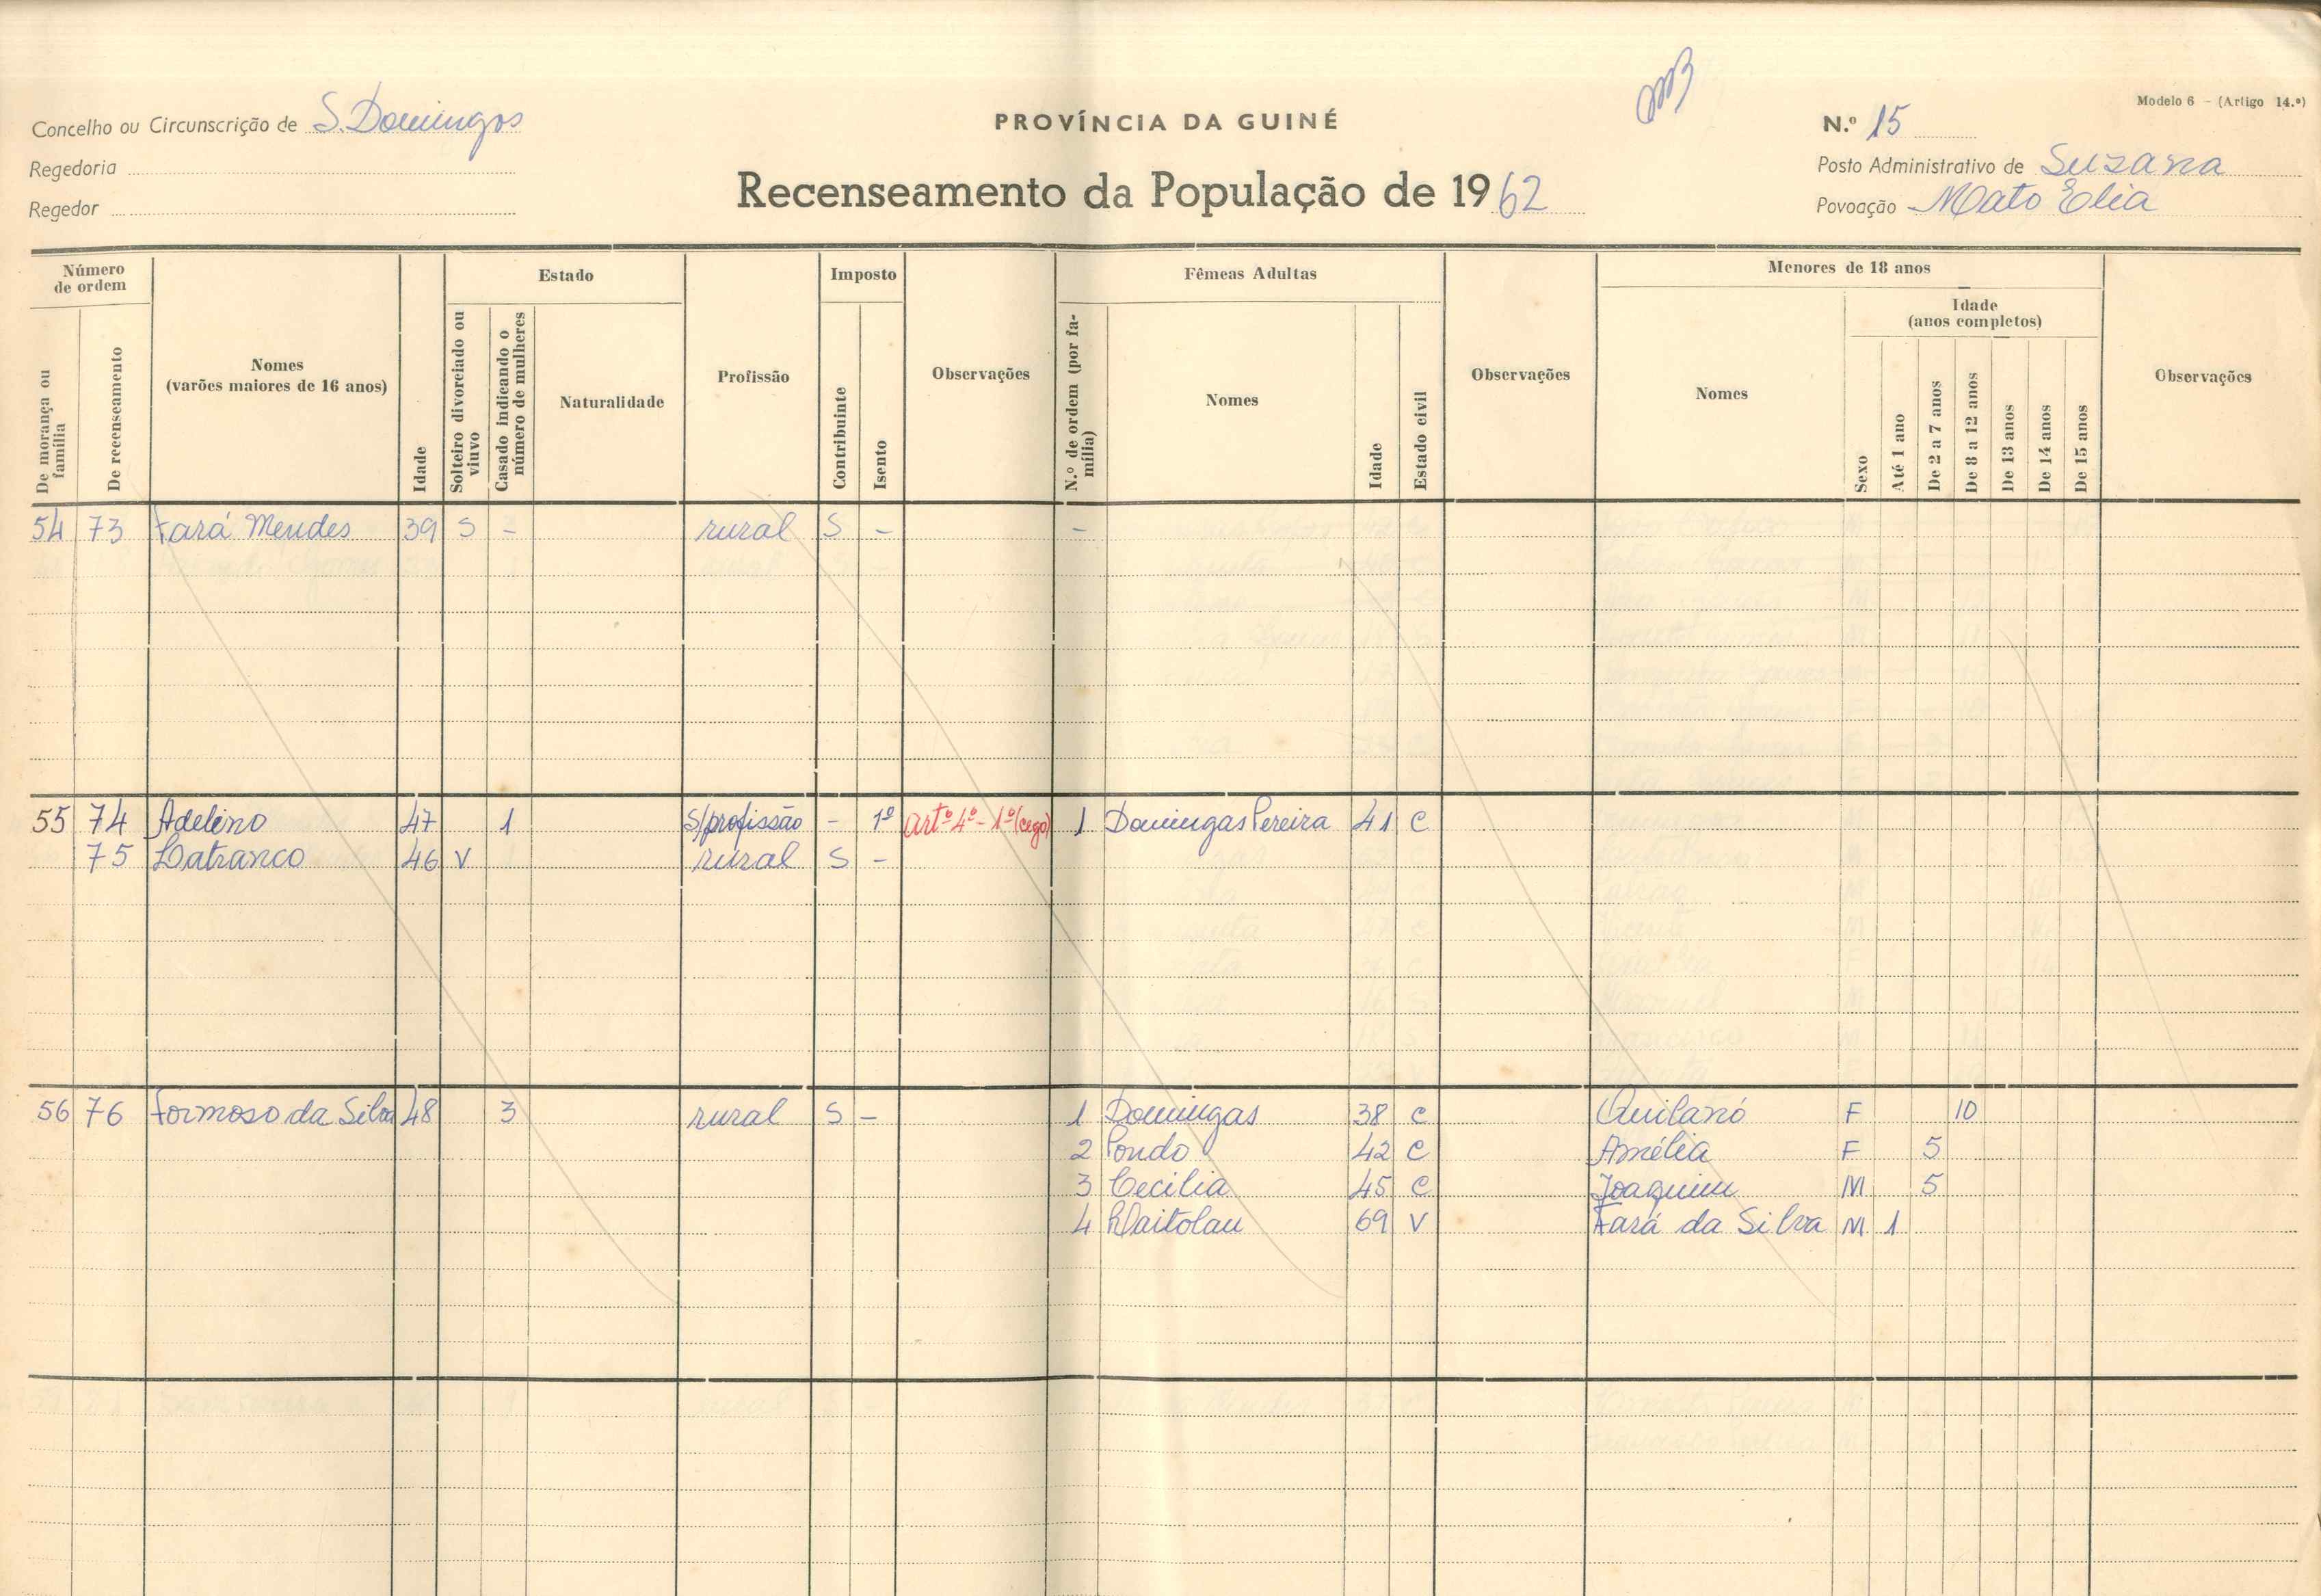 Modelo 6 - (Artigo 14.º)
Concelho ou Circunscrição de S. Domingos
PROVÍNCIA DA GUINÉ
N.º 15
Regedoria
Posto Administrativo de Suzana
Regedor
Recenseamento da População de 1962
Povoação Mato Elia
Número de ordem
Estado
Imposto
Fêmeas Adultas
Menores de 18 anos
Idade (anos completos)
De morança ou família
De recenseamento
Nomes (varões maiores de 16 anos)
Idade
Solteiro divorciado ou viuvo
Casado indicando o número de mulheres
Naturalidade
Profissão
Contribuinte
Isento
Observações
N.º de ordem (por família)
Nomes
Idade
Estado civil
Observações
Nomes
Sexo
Até 1 ano
De 2 a 7 anos
De 8 a 12 anos
De 13 anos
De 14 anos
De 15 anos
Observações
54 73 Fará Mendes 39 S - rural S - -
55 74 Adelino 47 1 S/profissão - 1º artº 4º - 1º (cego) 1 Domingas Pereira 41 C
75 46 V rural S -
56 76 Formoso da Silva 48 3 rural S - 1 Domingas 38 C Quilanó F 10
2 Pondo 42 C Amélia F 5
3 Cecilia 45 C Joaquim M 5
4 69 V Fará da Silva M 1